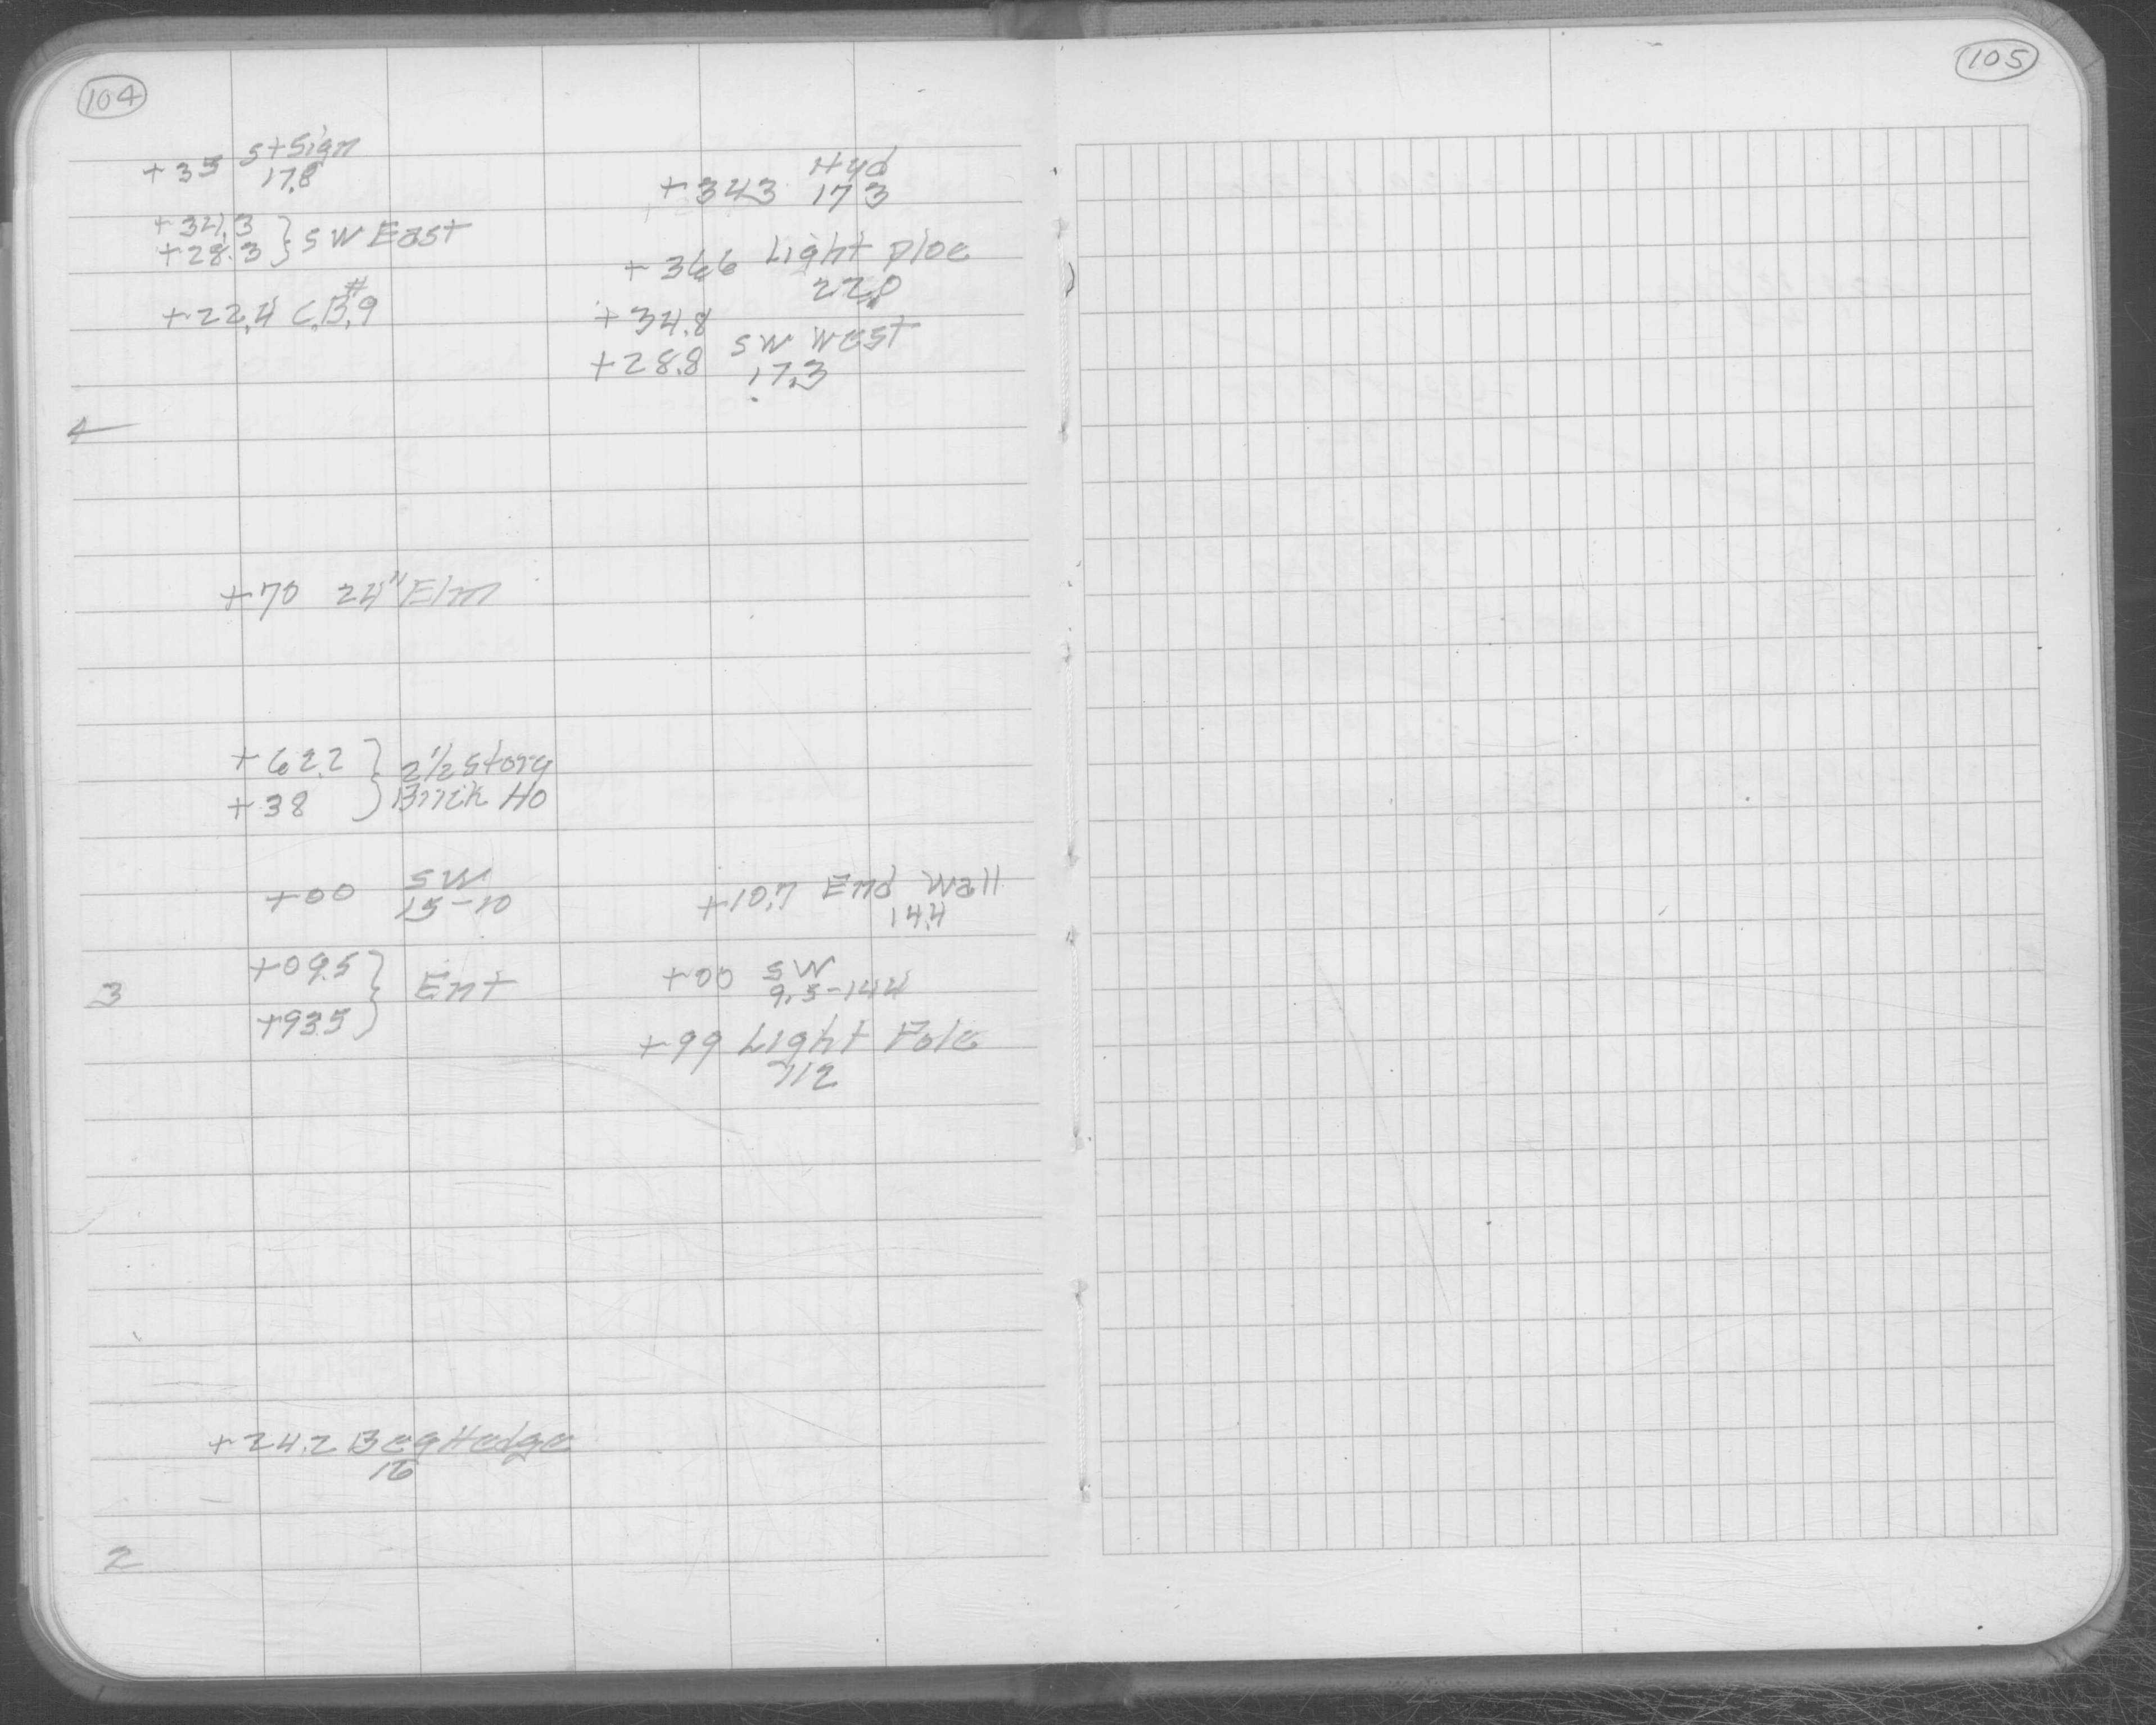 104
105
+35 St Sign
17.8
+34.3
+28.3 } SW East
+22.4 C.B. #9
+343 Hyd
173
+366 Light Ploe
22.0
+34.8
+28.8 SW West
17.3
4
+70 24" Elm
+62.2 } 2 1/2 Story
+38 Brick Ho
+00 SW
15-10
+10.7 End Wall
14.4
3
+09.5 } Ent
+93.5
+00 SW
9.5-14.4
+99 Light Pole
+24.2 Beg Hedge
16
2